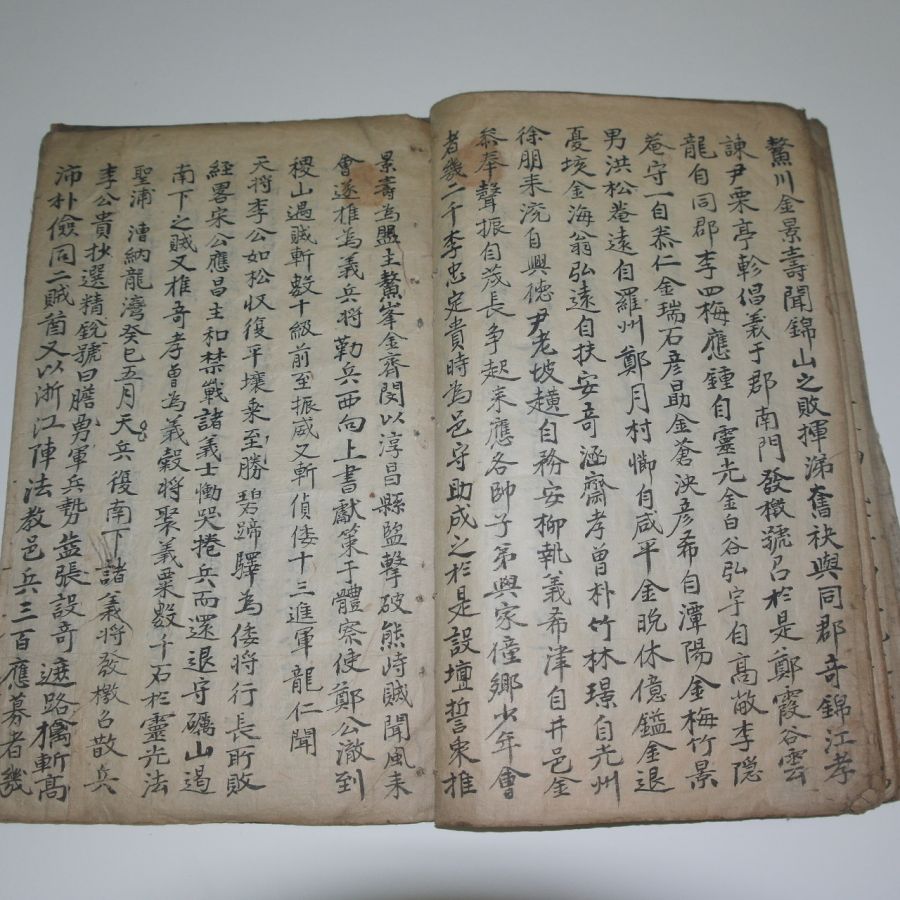 鰲川金景壽聞錦山之敗揮涕奮袂與同郡奇錦江孝
諫尹栗亭軫倡義于郡南門發檄號召於是鄭霞谷雲
龍自同郡李四梅應鍾自靈光金白谷弘宇自高敞李隱
菴守一自泰仁金瑞石彦勗金蒼泱彦希自潭陽金梅竹景
男洪松菴遠自羅州鄭月村慟自咸平金晩休億鎰金退
憂垓金海翁弘遠自扶安奇涵齋孝曾朴竹林璟自光州
徐朋來浣自興德尹老坡趪自務安柳執義希津自井邑金
泰奉聲振自茂長爭起來應各帥子弟與家僮鄉少年會
者幾二千李忠定貴時爲邑守助成之於是設壇誓衆推
景壽爲盟主鰲峯金齊閔以淳昌縣監擊破熊峙賊聞風來
會遂推爲義兵將勒兵西向上書獻策于體察使鄭公澈到
稷山遇賊斬數十級前至振威又斬偵倭十三進軍龍仁聞
天將李公如松收復平壤乘至勝碧蹄驛爲倭將行長所敗
經畧宋公應昌主和禁戰諸義士慟哭捲兵而還退守礪山遏
南下之賊又推奇孝曾爲義穀將聚義粟數千石於靈光法
聖浦 漕納龍灣癸巳五月天兵復南下諸義將發檄召散兵
李公貴抄選精銳號曰膽勇軍兵勢益張設奇遮路擒斬高
沛朴儉同二賊酋又以浙江陣法教邑兵三百應募者幾